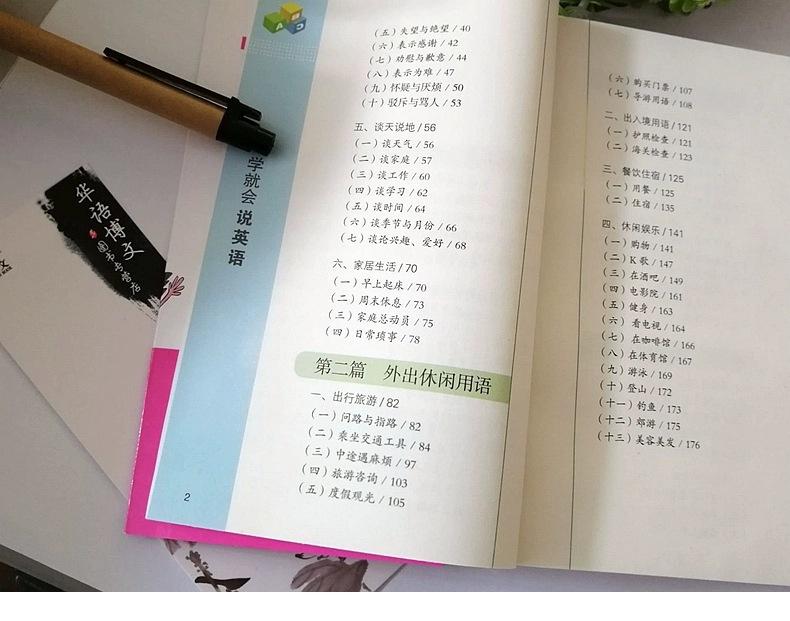 （五）失望与绝望 / 40
（六）表示感谢 / 42
（七）劝慰与歉意 / 44
（八）表示为难 / 47
（九）怀疑与厌烦 / 50
（十）驳斥与骂人 / 53
五、谈天说地 / 56
（一）谈天气 / 56
（二）谈家庭 / 57
（三）谈工作 / 60
（四）谈学习 / 62
（五）谈时间 / 64
（六）谈季节与月份 / 66
（七）谈论兴趣、爱好 / 68
六、家居生活 / 70
（一）早上起床 / 70
（二）周末休息 / 73
（三）家庭总动员 / 75
（四）日常琐事 / 78
第二篇 外出休闲用语
一、出行旅游 / 82
（一）问路与指路 / 82
（二）乘坐交通工具 / 84
（三）中途遇麻烦 / 97
（四）旅游咨询 / 103
（五）度假观光 / 105
2
学就会 说英语
（六）购买门票 / 107
（七）导游用语 / 108
二、出入境用语 / 121
（一）护照检查 / 121
（二）海关检查 / 123
三、餐饮住宿 / 125
（一）用餐 / 125
（二）住宿 / 135
四、休闲娱乐 / 141
（一）购物 / 141
（二）K 歌 / 147
（三）在酒吧 / 149
（四）电影院 / 161
（五）健身 / 163
（六） 看电视 / 164
（七） 在咖啡馆 / 166
（八）在体育馆 / 167
（九）游泳 / 169
（十）登山 / 172
（十一）钓鱼 / 173
（十二）郊游 / 175
（十三）美容美发 / 176
华语博文
图书专营店